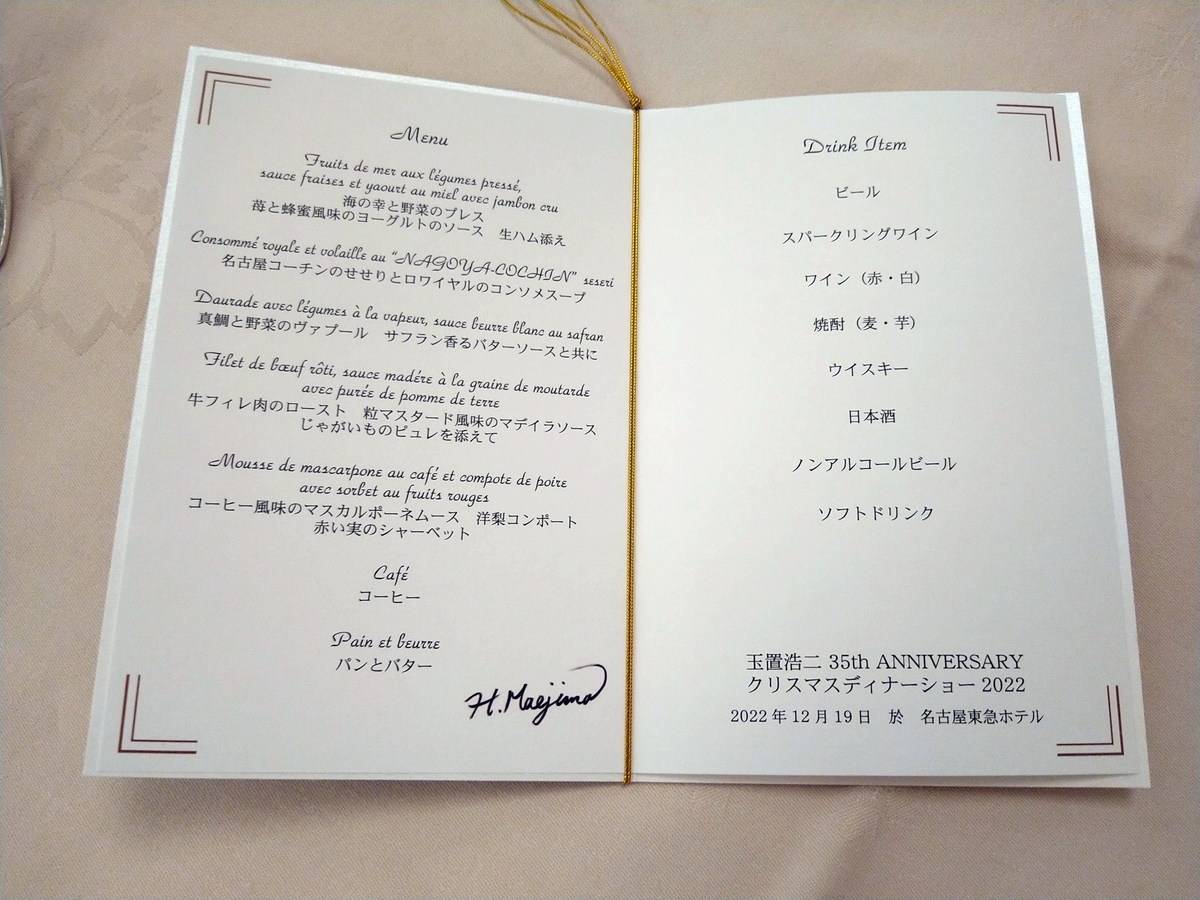 Menu
Fruits de mer aux légumes pressé,
sauce fraises et yaourt au miel avec jambon cru
海の幸と野菜のプレス
苺と蜂蜜風味のヨーグルトのソース　生ハム添え
Consommé royale et volaille au "NAGOYA-COCHIN" seseri
名古屋コーチンのせせりとロワイヤルのコンソメスープ
Daurade avec légumes à la vapeur, sauce beurre blanc au safran
真鯛と野菜のヴァプール　サフラン香るバターソースと共に
Filet de bœuf rôti, sauce madére à la graine de moutarde
avec purée de pomme de terre
牛フィレ肉のロースト　粒マスタード風味のマデイラソース
じゃがいものピュレを添えて
Mousse de mascarpone au café et compote de poire
avec sorbet au fruits rouges
コーヒー風味のマスカルポーネムース　洋梨コンポート
赤い実のシャーベット
Café
コーヒー
Pain et beurre
パンとバター
H. Maejima
Drink Item
ビール
スパークリングワイン
ワイン（赤・白）
焼酎（麦・芋）
ウイスキー
日本酒
ノンアルコールビール
ソフトドリンク
玉置浩二 35th ANNIVERSARY
クリスマスディナーショー 2022
2022 年 12 月 19 日　於　名古屋東急ホテル